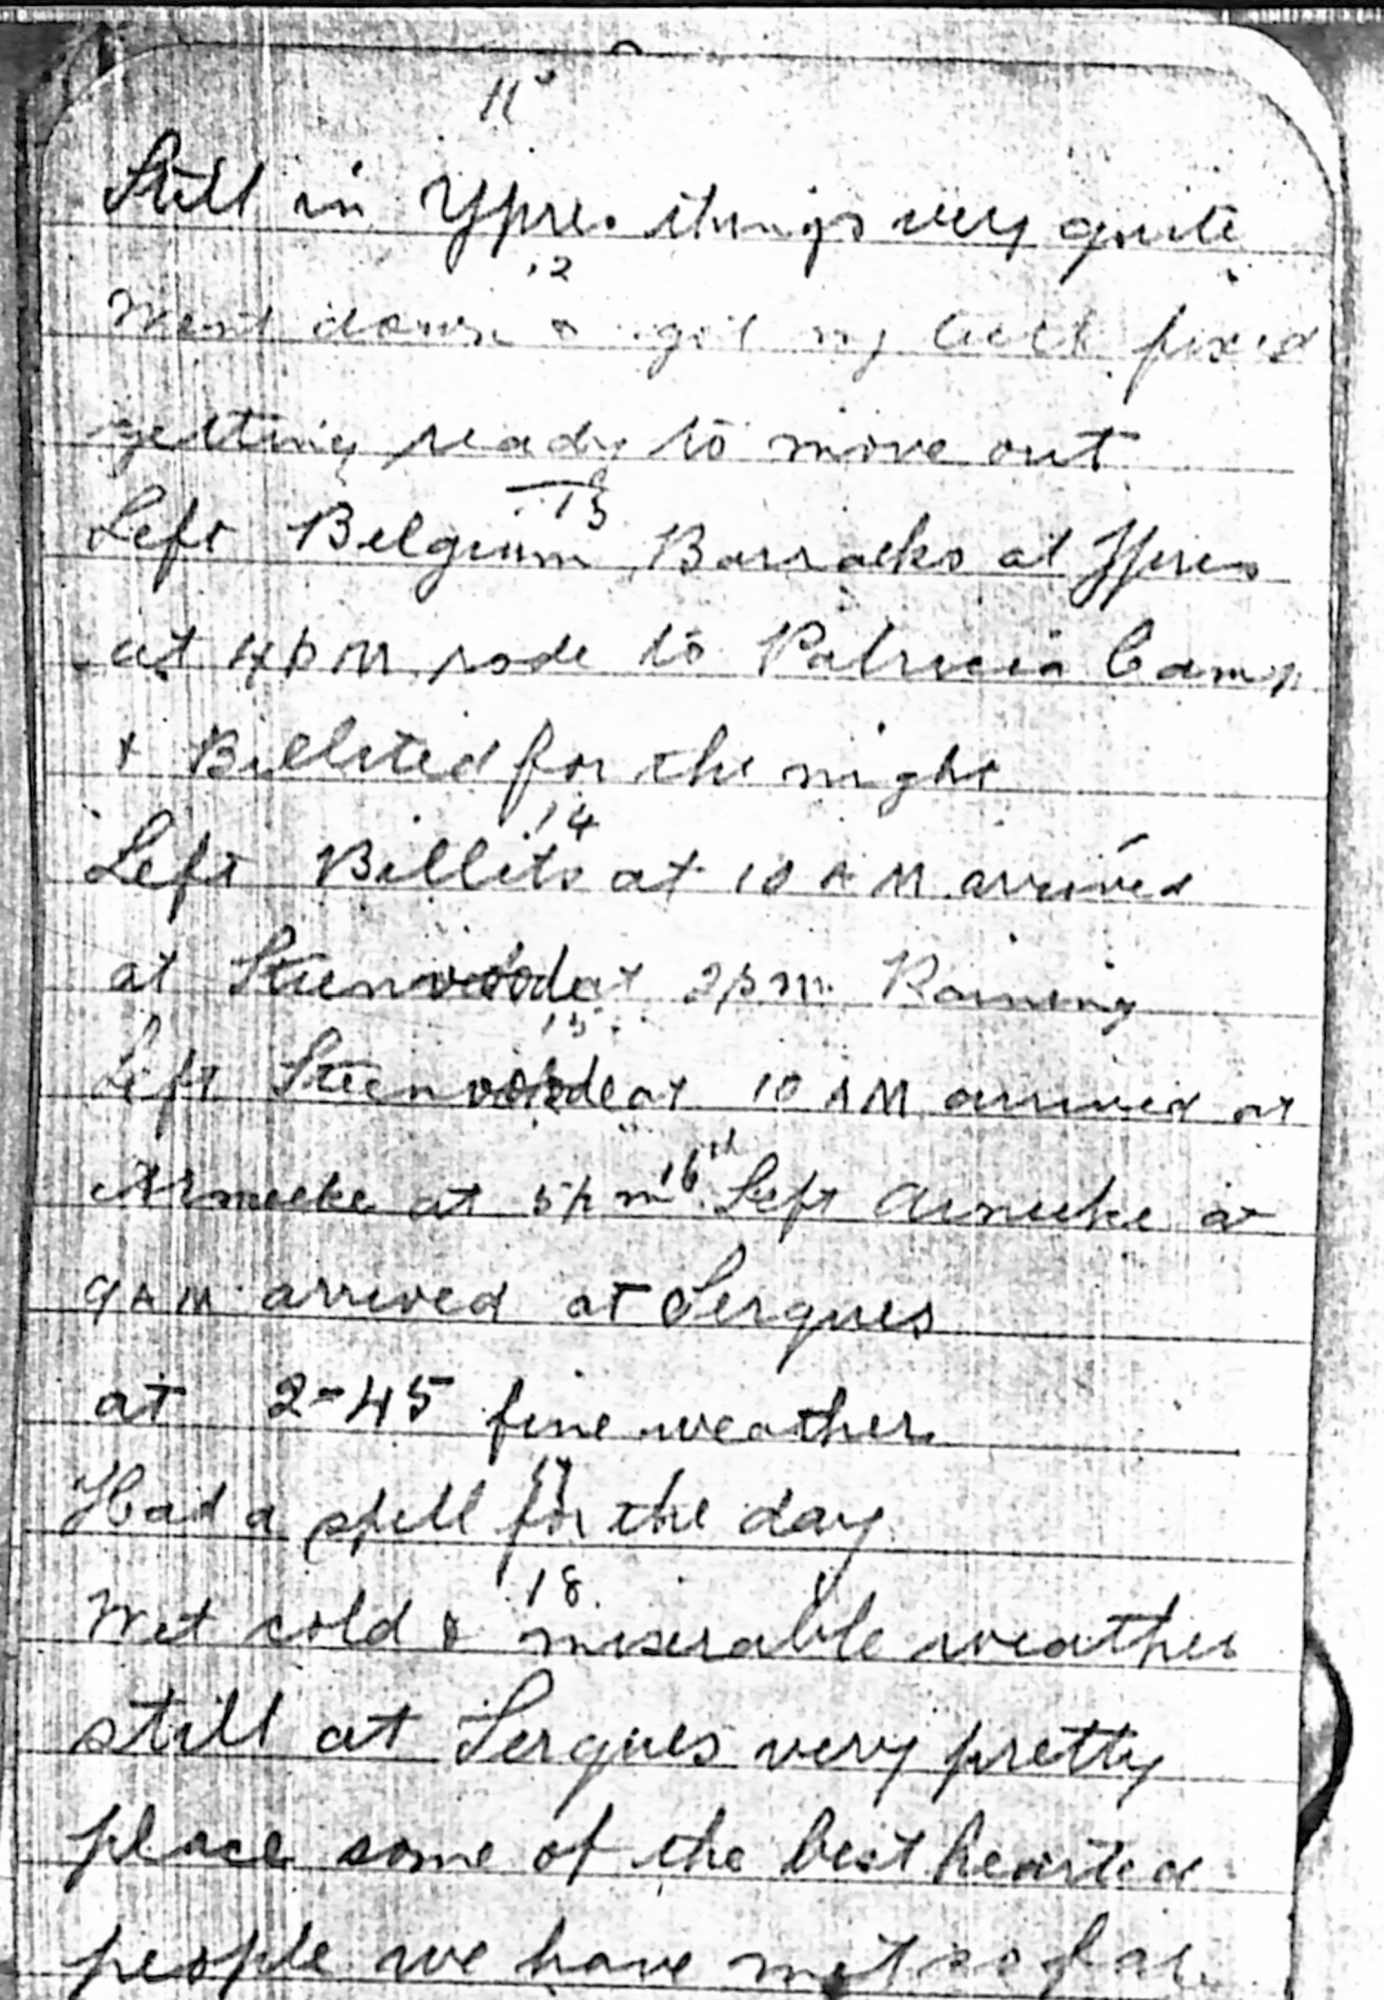 11
Still in Ypres things very quite
12
Went down & got my teeth fixed
getting ready to move out
13
Left Belgium Barracks at Ypres
at 4 PM rode to Patricia Camp
& Billeted for the night
14
Left Billits at 10 AM arrived
at Steenvoorde at 2 pm Raining
15
Left Steenvoorde at 10 AM arrived at
Arneeke at 5 pm 16th Left Arneeke at
9 AM arrived at Serques
at 2-45 fine weather
17
Had a spell for the day
18
Wet cold & miserable weather
still at Serques very pretty
place some of the best hearted
people we have met so far